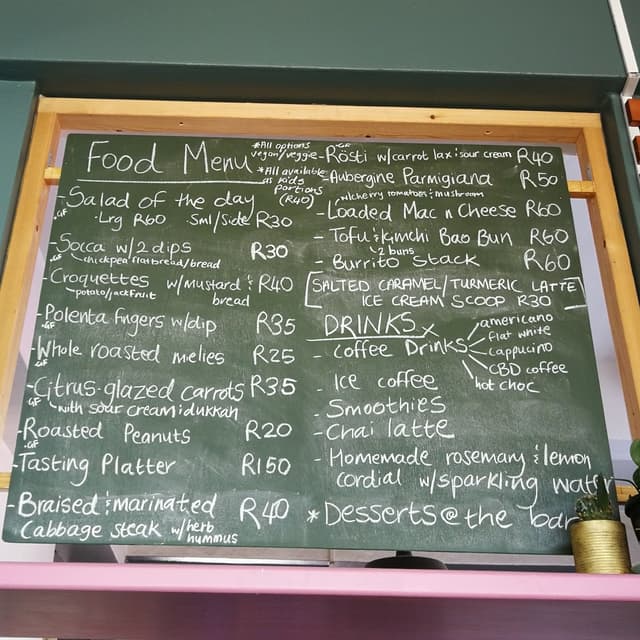 Food Menu
*All options
vegan/veggie
*All available
as kids
portions
(R40)
-Salad of the day
GF
·Lrg R60 Sml/Side R30
-Socca w/2 dips R30
GF
chickpea flatbread/bread
-Croquettes w/mustard & R40
potato/jackfruit bread
-Polenta fingers w/dip R35
GF
-Whole roasted melies R25
GF
-Citrus-glazed carrots R35
GF
with sour cream & dukkah
-Roasted Peanuts R20
GF
-Tasting Platter R150
-Braised & marinated R40
Cabbage steak w/herb
hummus
GF
-Rösti w/carrot lax & sour cream R40
-Aubergine Parmigiana R50
w/cherry tomatoes & mushroom
-Loaded Mac n Cheese R60
-Tofu & Kimchi Bao Bun R60
2 buns
-Burrito Stack R60
[SALTED CARAMEL/TURMERIC LATTE
ICE CREAM SCOOP R30]
DRINKS
-Coffee Drinks
americano
flat white
cappucino
CBD coffee
hot choc
-Ice coffee
-Smoothies
-Chai latte
-Homemade rosemary & lemon
cordial w/sparkling water
*Desserts @ the bar